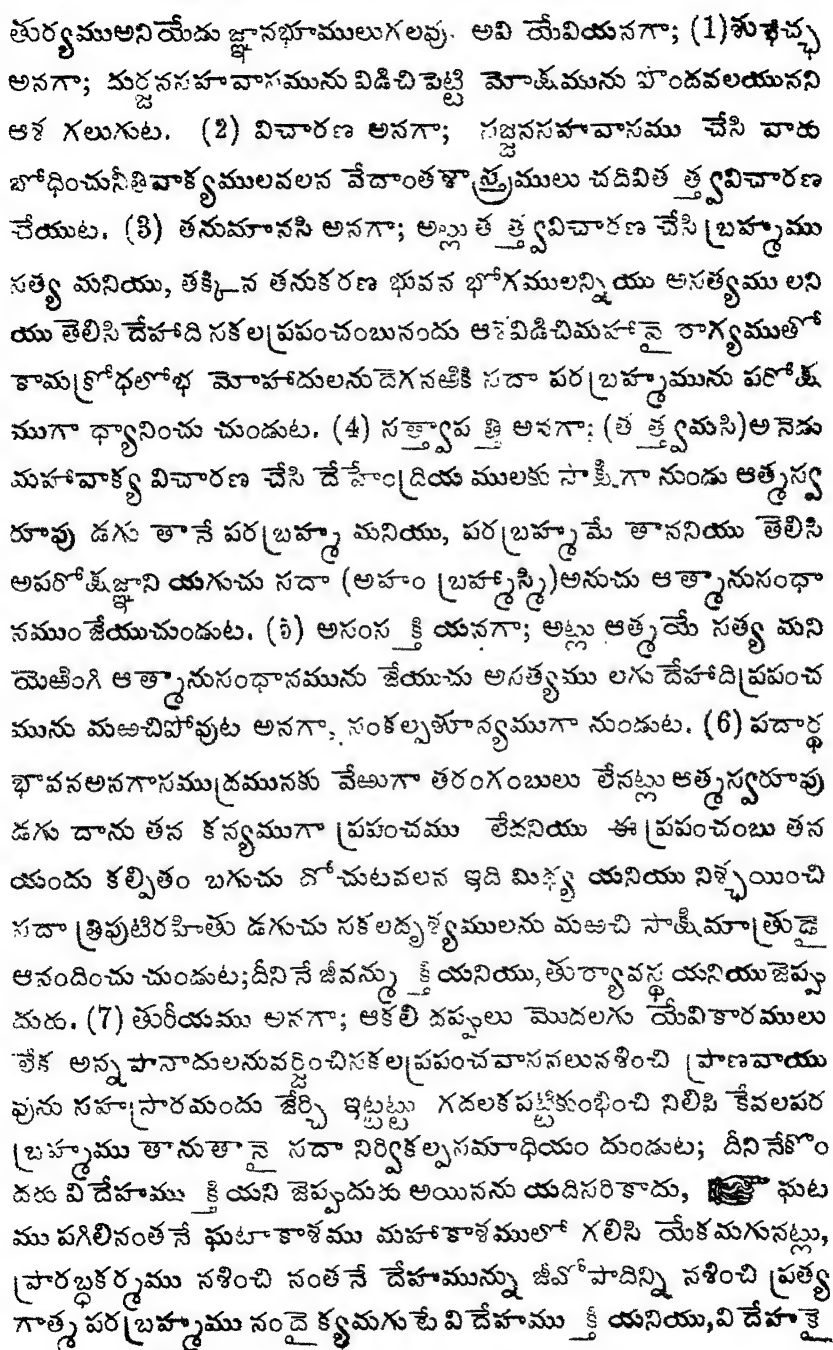 తుర్యముఅనియేడు జ్ఞానభూములుగలవు. అవి యేవియనగా; (1)శుభేచ్ఛ
అనగా; దుర్జనసహవాసమును విడిచిపెట్టి మోక్షమును పొందవలయునని
ఆశ గలుగుట. (2) విచారణ అనగా; సజ్జనసహవాసము చేసి వారు
బోధించునీతివాక్యములవలన వేదాంతశాస్త్రములు చదివిత త్త్వవిచారణ
చేయుట. (3) తనుమానసి అనగా; అట్లు త త్త్వవిచారణ చేసి బ్రహ్మము
సత్య మనియు, తక్కిన తనుకరణ భువన భోగములన్నియు అసత్యము లని
యు తెలిసి దేహాది సకలప్రపంచంబునందు ఆశవిడిచిమహా వై రాగ్యముతో
కామక్రోధలోభ మోహాదులనుదెగనఱికి సదా పరబ్రహ్మమును పరోక్ష
ముగా ధ్యానించు చుండుట. (4) సత్త్వాప త్తి అనగా; (త త్త్వమసి)అనెడు
మహావాక్య విచారణ చేసి దేహేంద్రియ ములకు సాక్షిగా నుండు ఆత్మస్వ
రూపు డగు తానే పరబ్రహ్మ మనియు, పరబ్రహ్మమే తాననియు తెలిసి
అపరోక్షజ్ఞాని యగుచు సదా (అహం బ్రహ్మాస్మి)అనుచు ఆత్మానుసంధా
నముం జేయుచుండుట. (5) అసంస క్తి యనగా; అట్లు ఆత్మయే సత్య మని
యెఱింగి ఆత్మానుసంధానమును జేయుచు అసత్యము లగు దేహాదిప్రపంచ
మును మఱచిపోవుట అనగా, సంకల్పశూన్యముగా నుండుట. (6) పదార్థ
భావనఅనగాసముద్రమునకు వేఱుగా తరంగంబులు లేనట్లు ఆత్మస్వరూపు
డగు దాను తన కన్యముగా ప్రపంచము లేదనియు ఈ ప్రపంచంబు తన
యందు కల్పితం బగుచు దోచుటవలన ఇది మిథ్య యనియు నిశ్చయించి
సదా త్రిపుటిరహితు డగుచు సకలదృశ్యములను మఱచి సాక్షిమాత్రుడై
ఆనందించు చుండుట;దీనినే జీవన్ము క్తి యనియు,తుర్యావస్థ యనియుజెప్పు
దురు. (7) తురీయము అనగా; ఆకలి దప్పులు మొదలగు యేవికారములు
లేక అన్నపానాదులనువర్జించిసకలప్రపంచవాసనలునశించి ప్రాణవాయు
వును సహస్రారమందు జేర్చి ఇట్టట్టు గదలకపట్టికుంభించి నిలిపి కేవలపర
బ్రహ్మము తానుతా నై సదా నిర్వికల్పసమాధియం దుండుట; దీనినేకొం
దరు విదేహము క్తి యని జెప్పుదురు అయినను యదిసరికాదు, ఘట
ము పగిలినంతనే ఘటాకాశము మహాకాశములో గలిసి యేకమగునట్లు,
ప్రారబ్ధకర్మము నశించి నంతనే దేహమున్ను జీవోపాదిన్ని నశించి ప్రత్య
గాత్మ పరబ్రహ్మము నందైక్యమగు టే విదేహము క్తి యనియు,విదేహకై